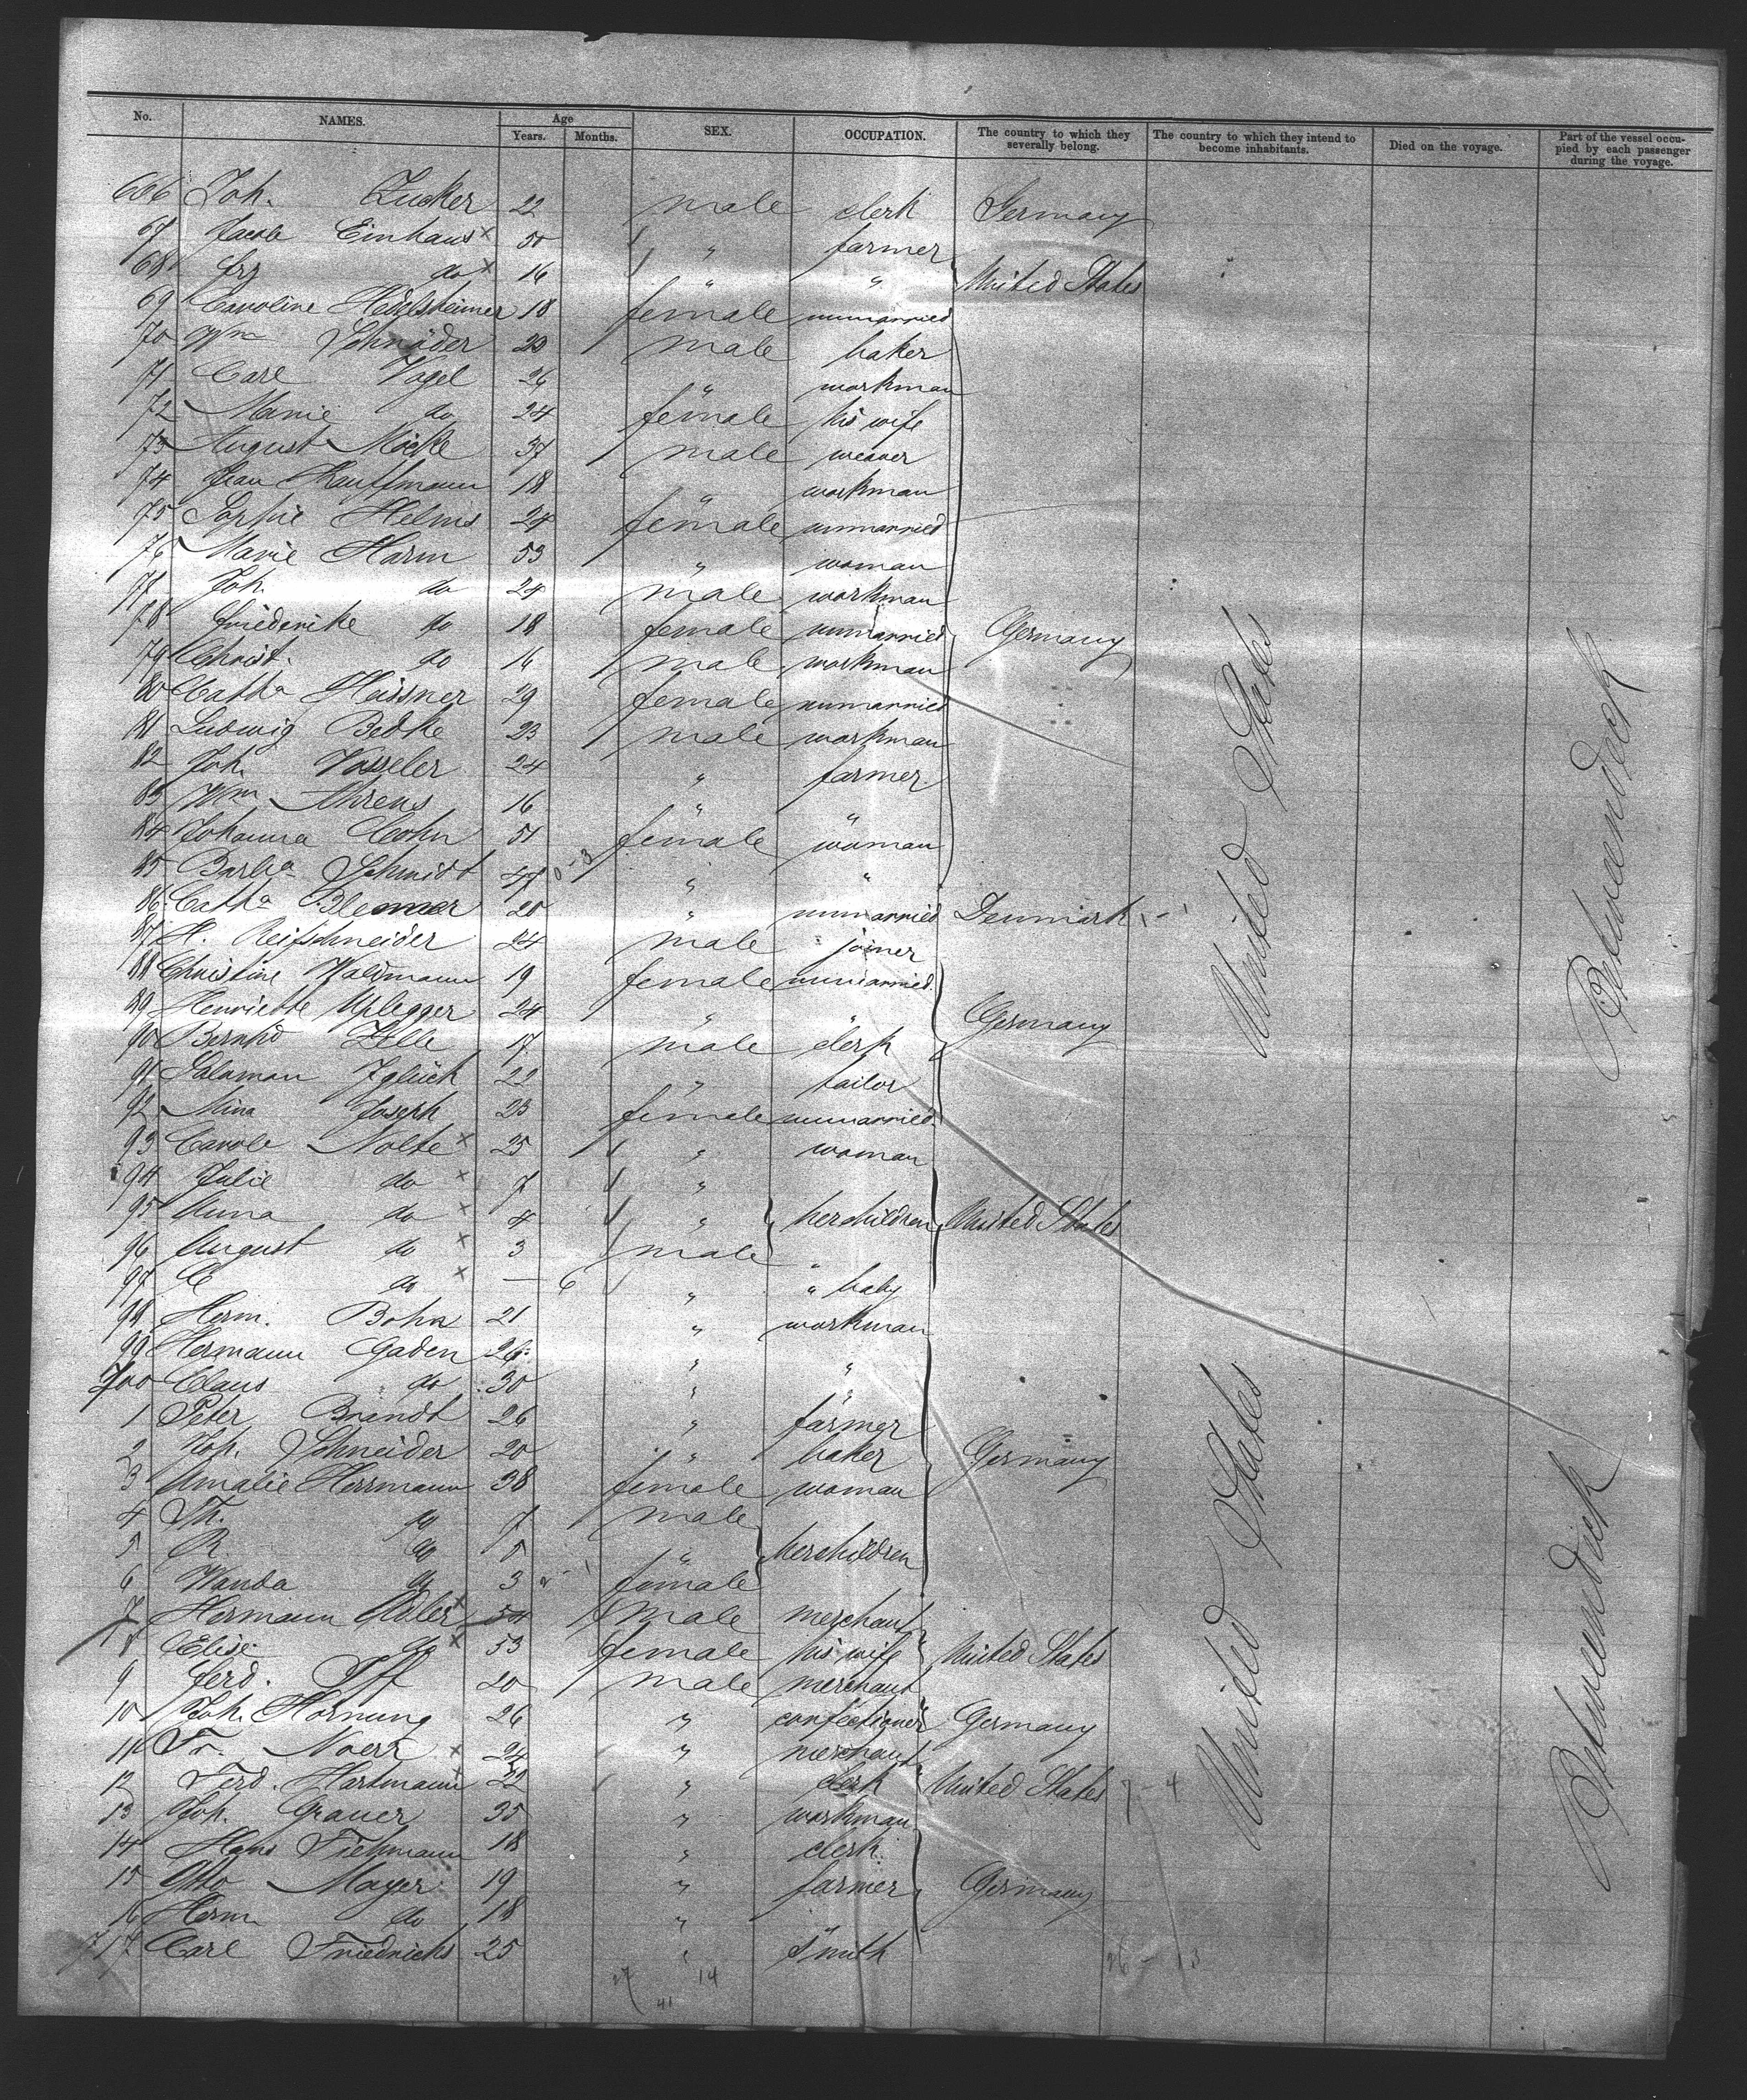 No. NAMES. Age Years. Months. SEX. OCCUPATION. The country to which they severally belong. The country to which they intend to become inhabitants. Died on the voyage. Part of the vessel occupied by each passenger during the voyage.
666 Joh. Zucker 22 male clerk Germany
67 Jacob Einhaus x 50 " farmer
68 Frz do x 16 " " United States
69 Caroline Hedelsheimer 18 female unmarried
70 Wm Schnäder 20 male baker
71 Carl Vogel 26 " workman
72 Marie do 24 female his wife
73 August Möcke 37 male weaver
74 Jean Kauffmann 18 " workman
75 Sophie Helms 24 female unmarried
76 Marie Harm 53 " woman
77 Joh. do 24 male workman
78 Friederike do 18 female unmarried Germany
79 Christ. do 16 male workman
80 Catha Heissner 29 female unmarried
81 Ludwig Bedke 23 male workman
82 Joh. Vosseler 24 " farmer
83 Wm Ahrens 16 " "
84 Johanna Cohn 51 female woman
85 Barba Schmidt 47 " "
86 Catha 20 " unmarried Denmark
87 H. Reifschneider 24 male joiner
88 Christine Waldmann 19 female unmarried
89 Henriette Uplegger 24 " " Germany
90 Bernhd Zelle 17 male clerk
91 Salaman Iglück 22 " tailor
92 Mina Joseph 23 female unmarried
93 Carole Nolte x 25 " woman
94 Julie do x 7 "
95 Anna do x 4 " her children United States
96 August do x 3 male "
97 C do x — 6 " " baby
98 Herm. Bohn 21 " workman
99 Hermann Gaden 26 " "
700 Claus do 30 " "
1 Peter Brandt 26 " farmer
2 Joh. Schneider 20 " baker Germany
3 Amalie Herrmann 38 female woman
4 Th. do 7 male
5 R do 5 " her children
6 Wanda do 3 female
7 Hermann Adler x 54 male merchant
8 Elise do x 53 female his wife United States
9 Ferd. Iff 20 male merchant
10 Joh. Hornung 26 " confectioner Germany
11 Fr. Noerr x 24 " merchant
12 Ferd. Hartmann x 22 " clerk United States 7 4
13 Joh. Grauer 35 " workman
14 Hans Tiehmann 18 " clerk
15 Otto Mayer 19 " farmer Germany
16 Herm. do 18 " "
717 Carl Friedrichs 25 " smith
27 14
41
26 – 13
United States
United States
Betweendeck
Betweendeck